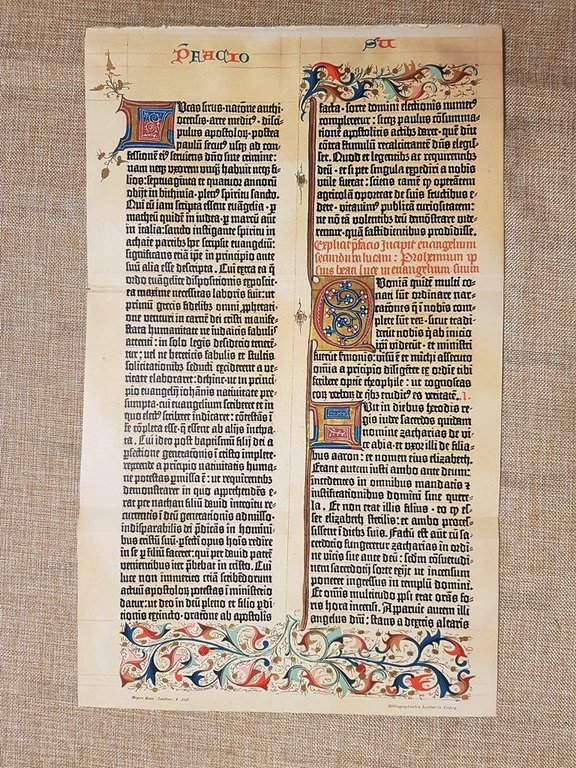 P̄FACIO
Lucas sirus· natōne anthi-
ocensis· arte medic9· disci-
pulus apostoloꝝ· postea
paulū secut9 usqꝫ ad con-
fessionē eī9 seruiens dn̄o sine crimine:
nam neqꝫ vxorem unq̄ habuit neqꝫ fi-
lios: septuaginta et quatuor annorū
obijt in bithinia· plen9 spiritu sancto.
Qui cū iam scripta essent euāgelia· ꝑ
matheū quidē in iudea· ꝑ marcū aūt
in italia: sancto instigante spiritu in
achaie partibȝ hoc scripsit euangeliū:
significans eciā ip̄e in principio ante
suū alia esse descripta. Cui extra ea q̄
ordo euāgelice dispositionis exposcit·
ea maxime necessitas laboris fuit: ut
primū grecis fidelibȝ omni ꝓphetati-
one venturi in carnē dei cristi manife-
stata humanitate ne iudaicis fabulis
attenti: in solo legis desiderio tenerē-
tur: vel ne hereticis fabulis et stultis
solicitationibȝ seducti exciderent a ve-
ritate elaboraret: dehinc· ut in princi-
pio euangelij iohānis natiuitate pre-
sumpta· cui euangelium scriberet et in
quo elect9 scriberet indicaret: cōtestās ī
se cōpleta esse· q̄ essent ab alijs incho-
ata. Cui ideo post baptismū filij dei a
ꝑfectione generationis ī cristo implete·
repetende a prīcipio natiuitatis huma-
ne potestas ꝑmissa ē: ut requirentibȝ
demonstraret in quo apprehendēs e-
rat per nathan filiū dauid introitu re-
currentis ī deū generationis admisso·
indisparabilis dei p̄dicās in homini-
bus cristū suū· ꝑfecti opus hoīs redire
in se ꝑ filiū faceret: qui per dauid patrē
venientibus iter p̄bebat in cristo. Cui
luce non immerito eciā scribēdorum
actuū apostoloꝝ potestas ī ministerio
datur: ut deo in deū pleno et filio ꝓdi-
tionis extincto· oratōne ab apostolis
SU
facta· sorte domini electionis numer9
compleretur: sicqꝫ paulus cōsumma-
tionē apostolicis actibȝ daret· quē diu
cōtra stimulū recalcitrantē dn̄s elegis-
set. Quod et legentibȝ ac requirentibȝ
deū· et si per singula expediri a nobis
vtile fuerat: sciens tamē q̄ operantem
agricolā oporteat de suis fructibus e-
dere· vitauim9 publicā curiositatem:
ne nō tā volentibȝ deū demōstrare vide-
remur· quā fastidientibus prodidisse.
Explicit p̄facio Incipit euangelium
secundum lucam: Prohemium ip-
sius beati luce in euangelium suum
Quoniā quidē multi co-
nati sūt ordinare nar-
rationes q̄ ī nobis com-
plete sūt reꝝ· sicut tradi-
derūt nobis q̄ ab inicio
ip̄i viderūt· et ministri
fuerūt sermonis: visū ē et michi assecuto
omīa a principio diligēter ex ordīe tibi
scribere optie theophile: ut cognoscas
eoꝝ verboꝝ de qibȝ erudit9 es veritatē. I.
Fuit in diebus herodis re-
gis iude sacerdos quidam
nomine zacharias de vi-
ce abia· et vxor illi de fili-
abus aaron: et nomen eius elizabeth.
Erant autem iusti ambo ante deum:
incedentes in omnibus mandatis et
iustificationibus domini sine quere-
la. Et non erat illis filius· eo q̄ es-
set elizabeth sterilis: et ambo proces-
sissent ī diebȝ suis. Factū est aūt cū sa-
cerdotio fungeretur zacharias in ordi-
ne vicis sue ante deū: scd̄m cōsuetudi-
nem sacerdotij sorte exijt ut incensum
poneret ingressus in templū domini.
Et om̄is multitudo ꝑlī erat orās fo-
ris hora incensi. Apparuit autem illi
angelus dn̄i: stans a dextris altaris
Meyers Konv.-Lexikon, 5. Aufl.
Bibliographisches Institut in Leipzig.